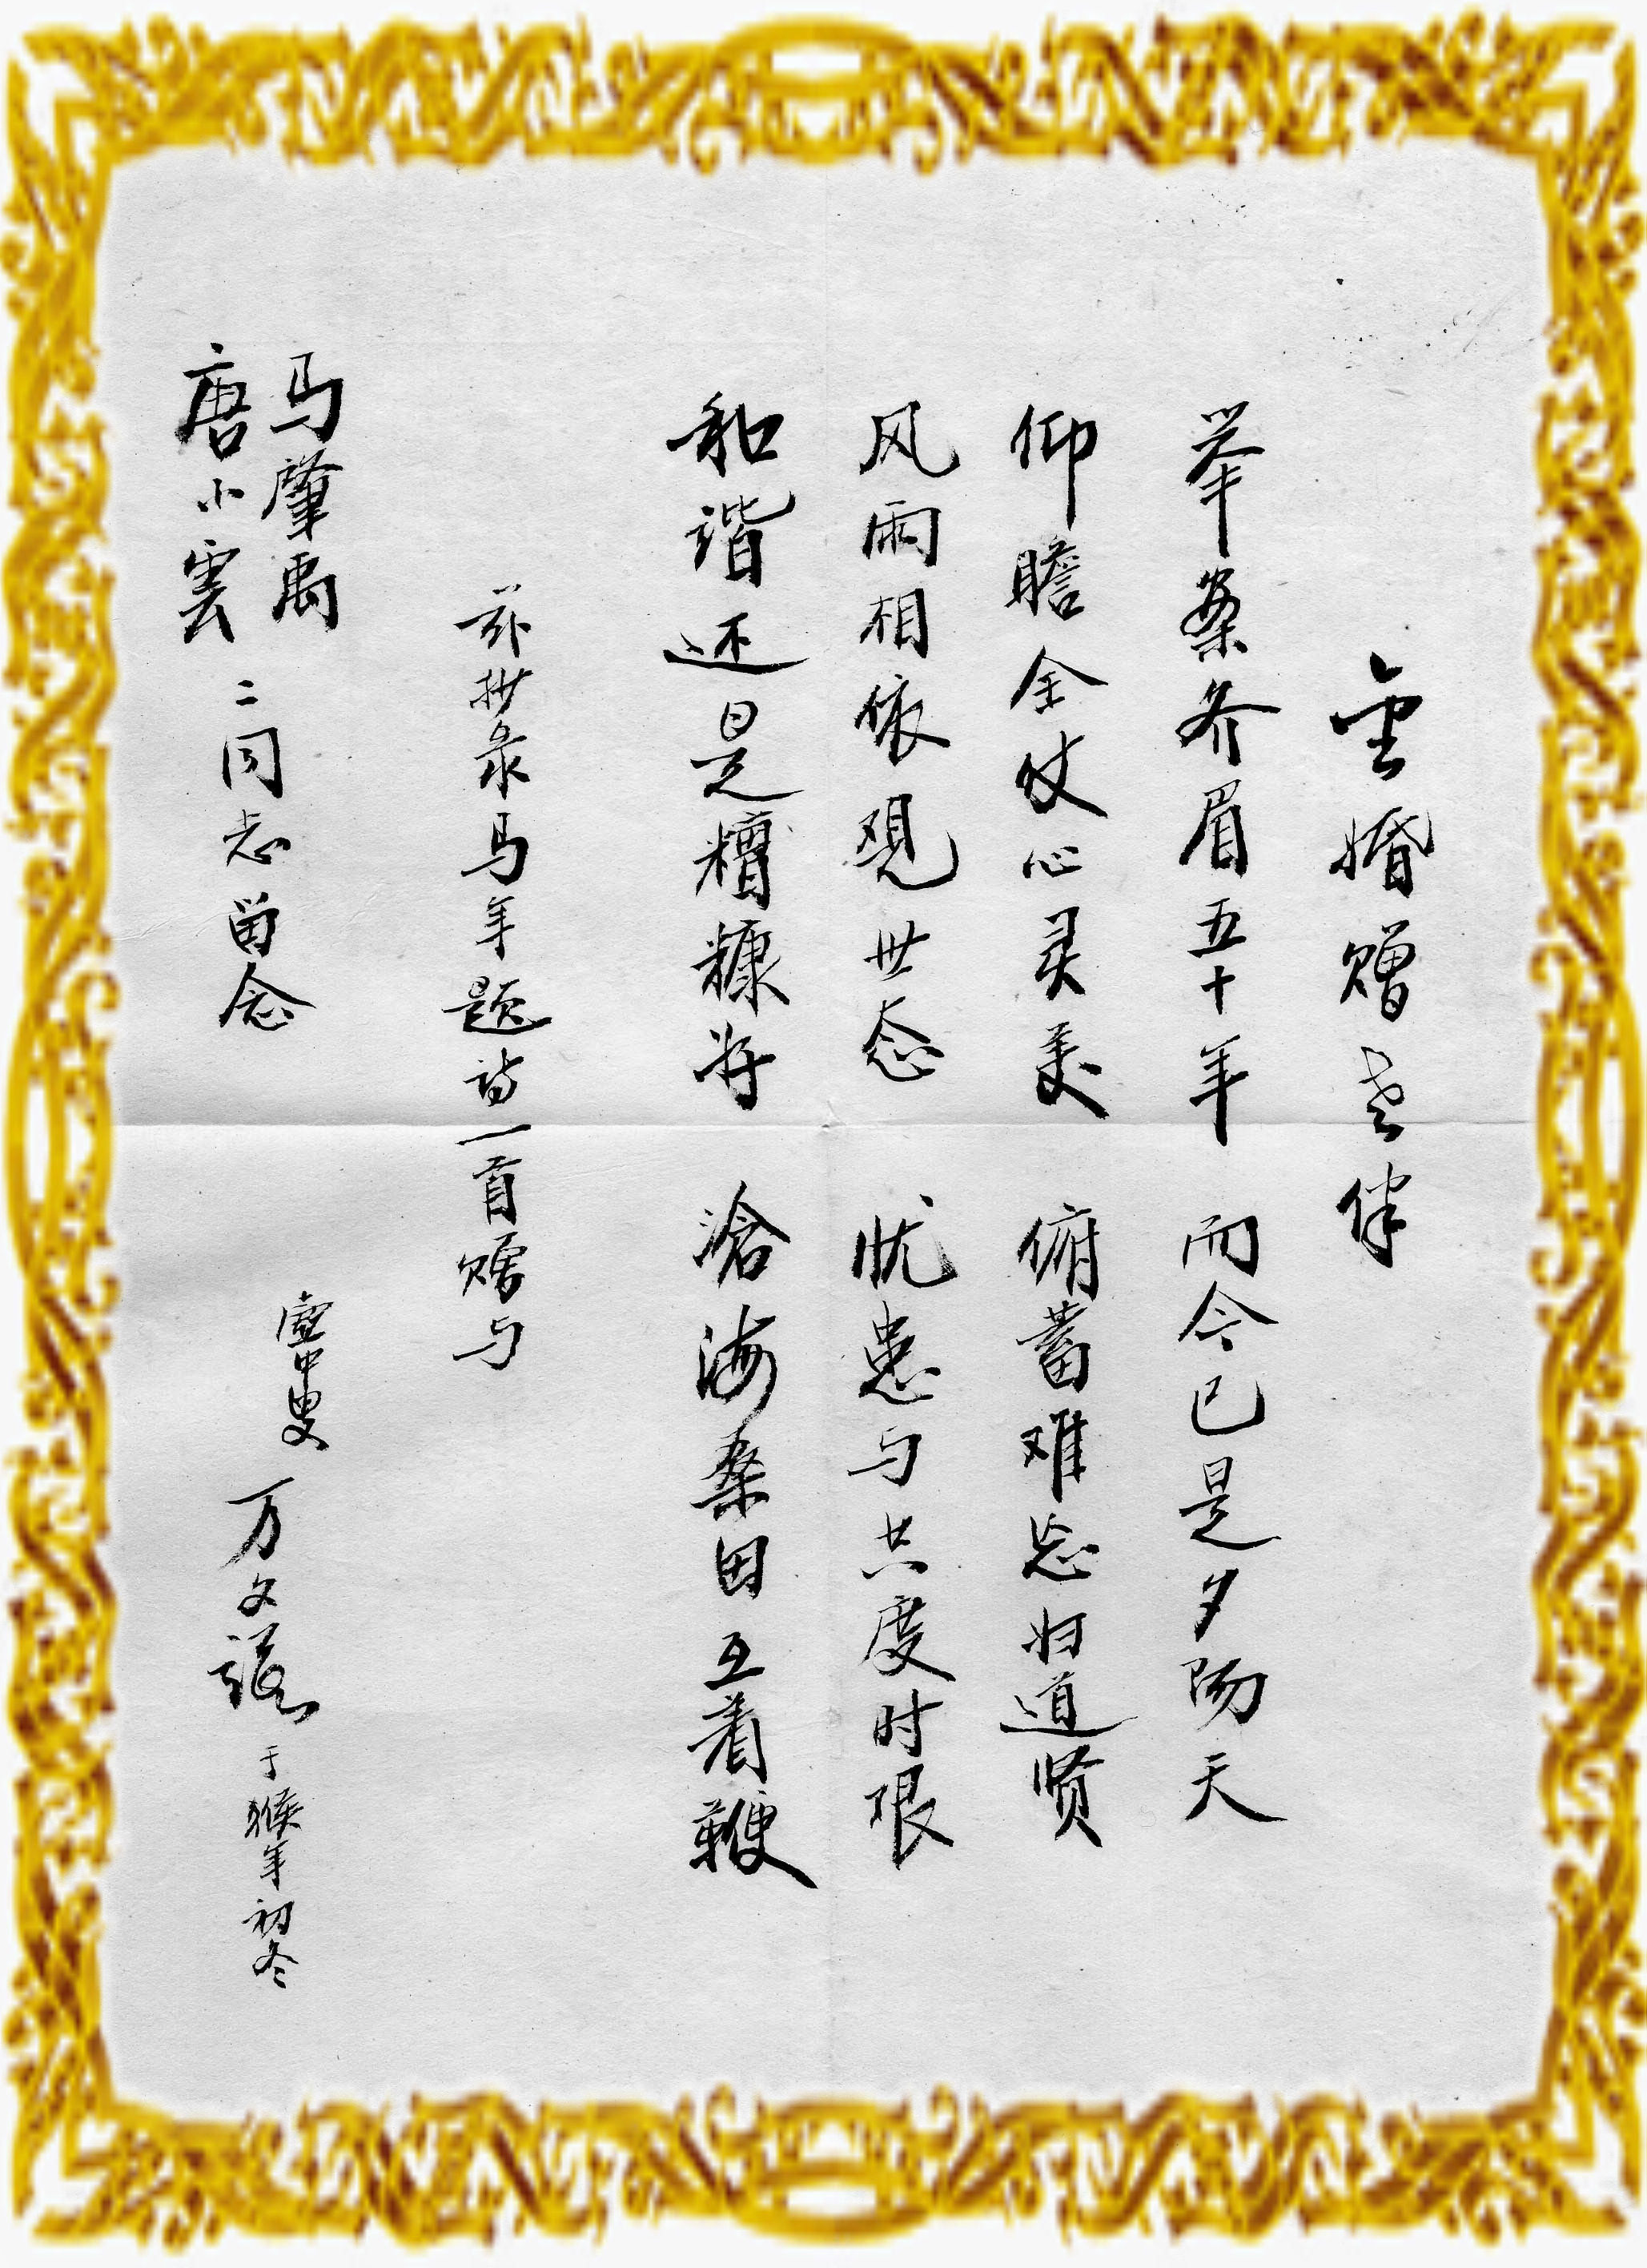 金婚赠老伴
举案齐眉五十年 而今已是夕阳天
仰瞻全仗心灵美 俯蓄难忘妇道贤
风雨相依观世态 忧患与共度时艰
和谐还是糟糠好 滄海桑田互着鞭
兹抄录马年题诗一首赠与
马肇禹
唐小雲
二同志留念
中叟 万文 于猴年初冬